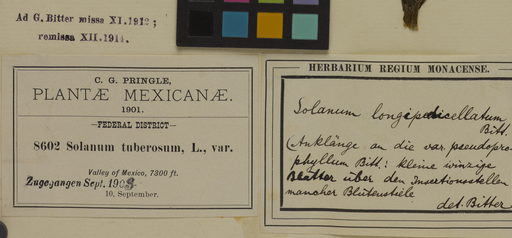 Ad G. Bitter missa XI.1912;
remissa XII.1914.
C. G. PRINGLE,
PLANTÆ MEXICANÆ.
1901.
—FEDERAL DISTRICT—
8602 Solanum tuberosum, L., var.
Valley of Mexico, 7300 ft.
Zugegangen Sept. 1903.
10, September.
HERBARIUM REGIUM MONACENSE.
Solanum longipedicellatum
Bitt.
(Anklänge an die var. pseudopro-
phyllum Bitt.: kleine winzige
Blätter über den Insertionsstellen
mancher Blütenstiele
det. Bitter